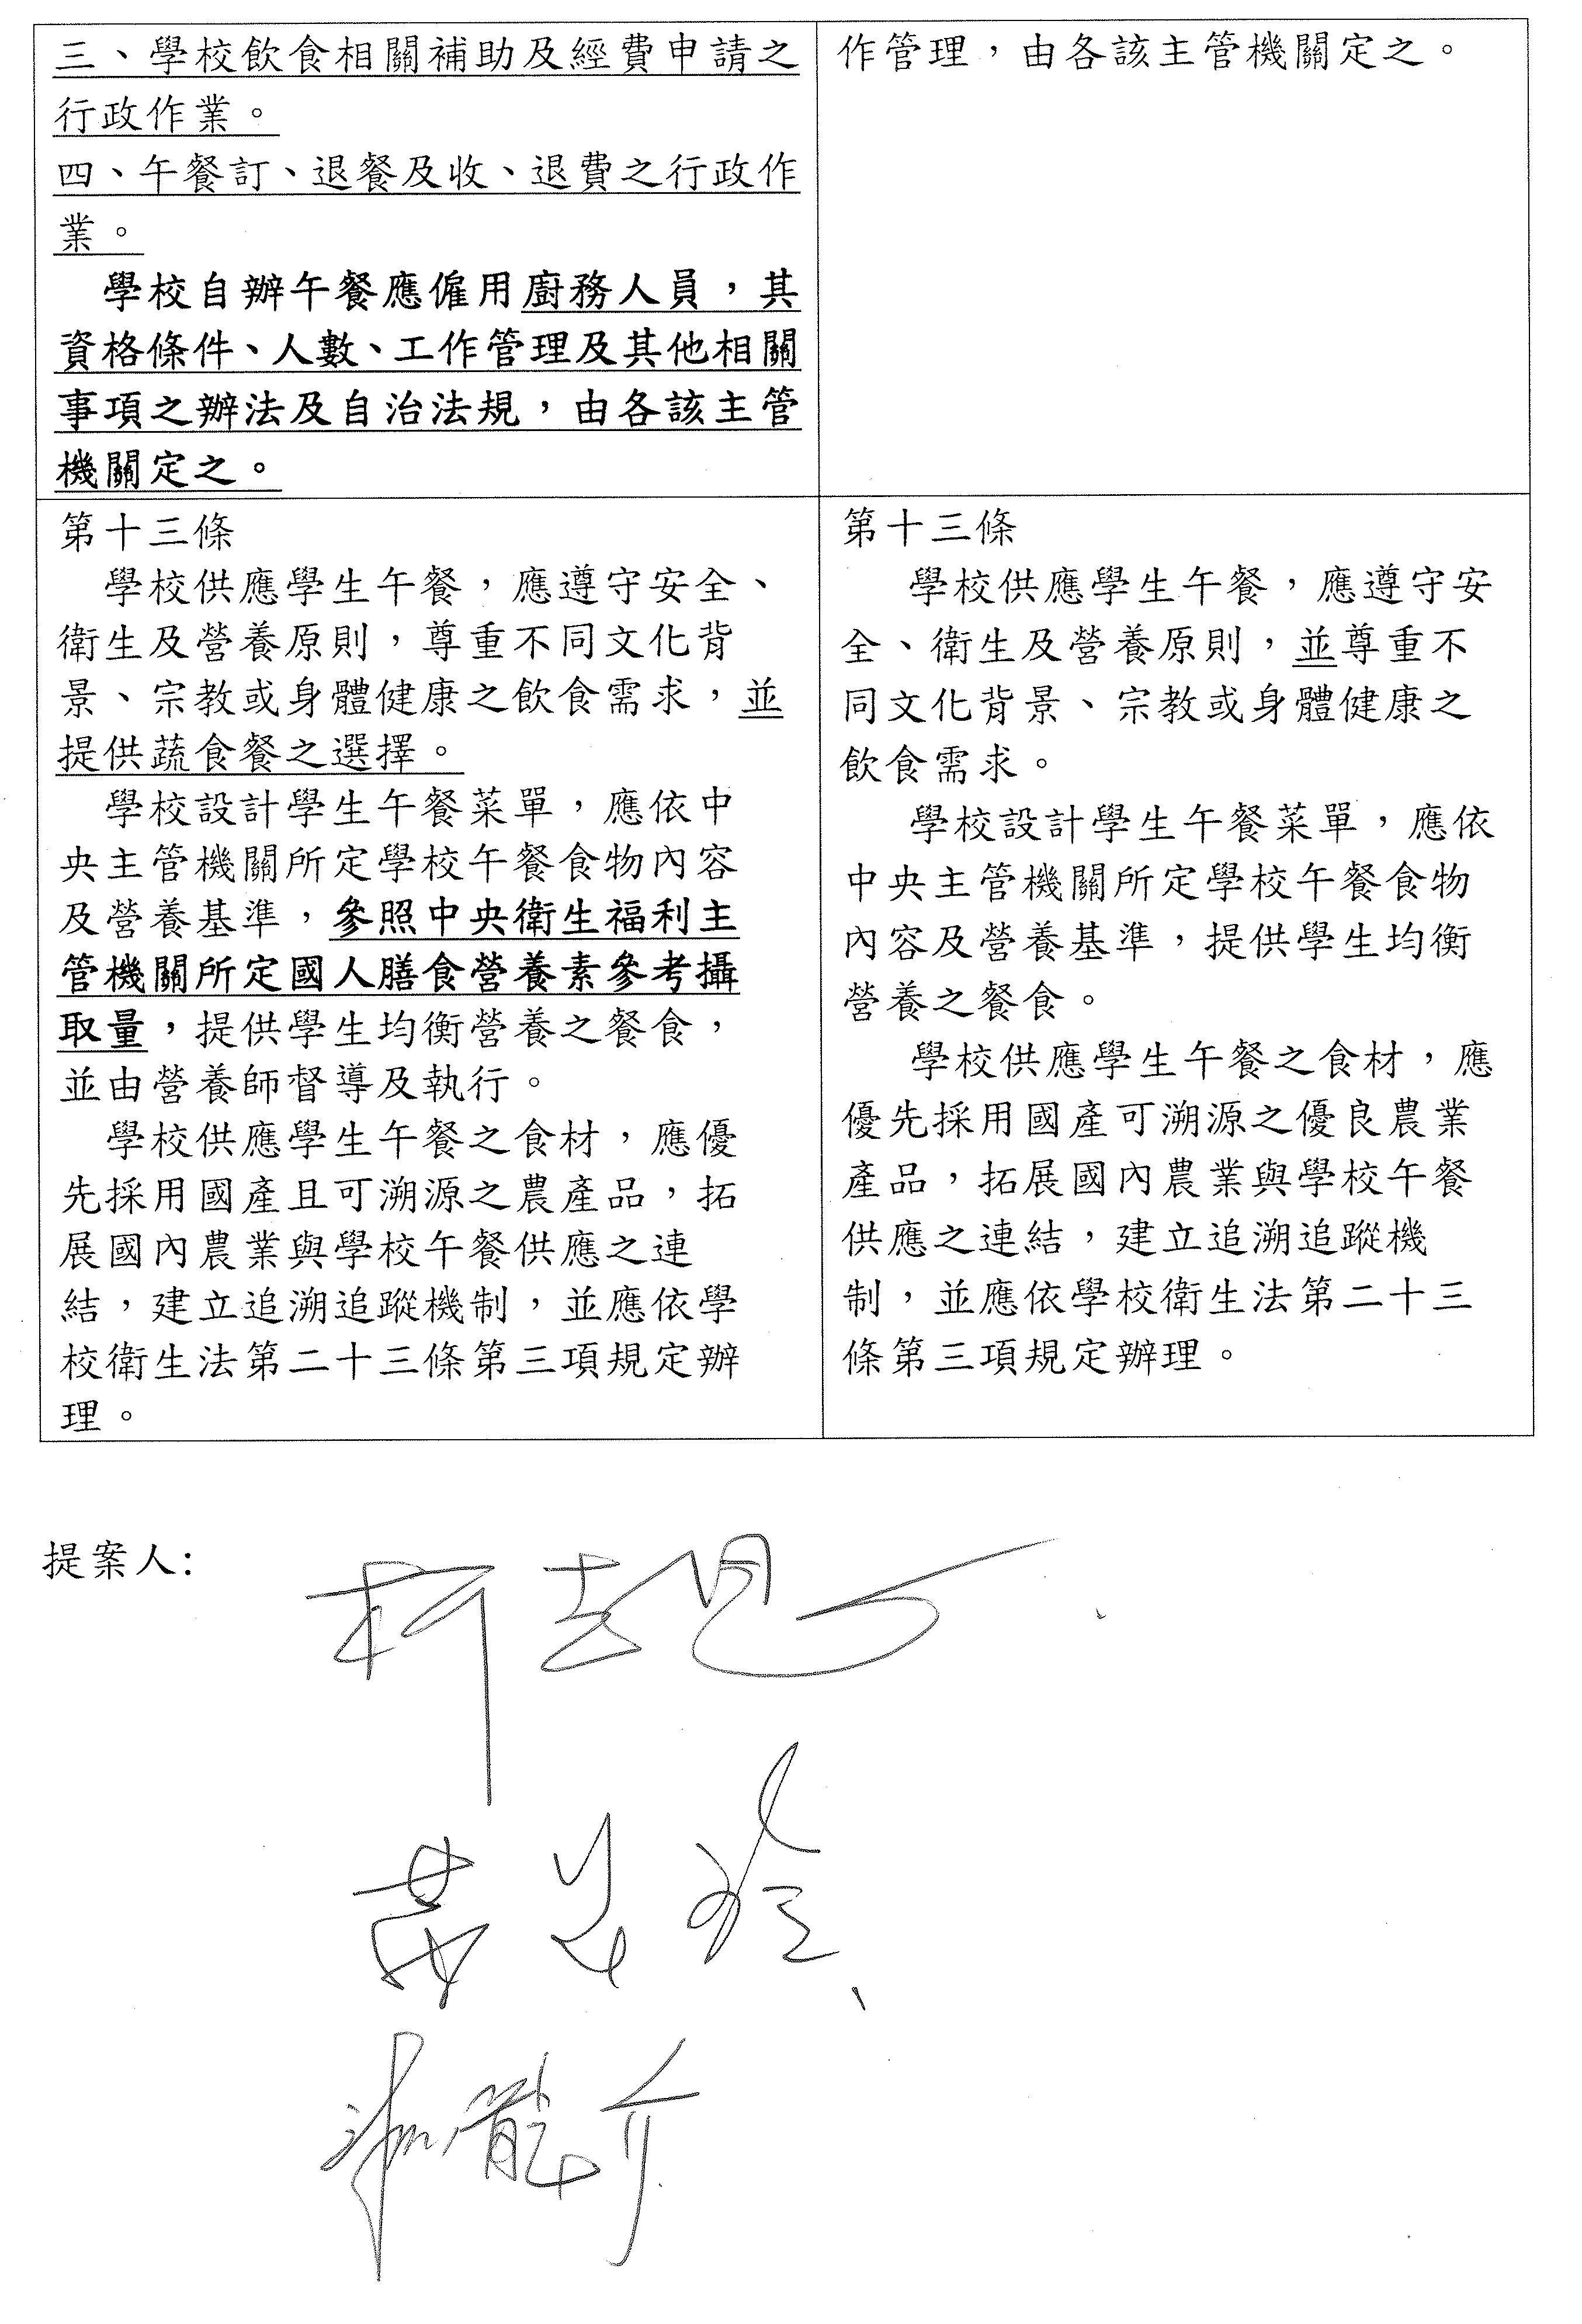 三、學校飲食相關補助及經費申請之
行政作業。
四、午餐訂、退餐及收、退費之行政作
業。
學校自辦午餐應僱用廚務人員，其
資格條件、人數、工作管理及其他相關
事項之辦法及自治法規，由各該主管
機關定之。
作管理，由各該主管機關定之。
第十三條
學校供應學生午餐，應遵守安全、
衛生及營養原則，尊重不同文化背
景、宗教或身體健康之飲食需求，並
提供蔬食餐之選擇。
學校設計學生午餐菜單，應依中
央主管機關所定學校午餐食物內容
及營養基準，參照中央衛生福利主
管機關所定國人膳食營養素參考攝
取量，提供學生均衡營養之餐食，
並由營養師督導及執行。
學校供應學生午餐之食材，應優
先採用國產且可溯源之農產品，拓
展國內農業與學校午餐供應之連
結，建立追溯追蹤機制，並應依學
校衛生法第二十三條第三項規定辦
理。
第十三條
學校供應學生午餐，應遵守安
全、衛生及營養原則，並尊重不
同文化背景、宗教或身體健康之
飲食需求。
學校設計學生午餐菜單，應依
中央主管機關所定學校午餐食物
內容及營養基準，提供學生均衡
營養之餐食。
學校供應學生午餐之食材，應
優先採用國產可溯源之優良農業
產品，拓展國內農業與學校午餐
供應之連結，建立追溯追蹤機
制，並應依學校衛生法第二十三
條第三項規定辦理。
提案人: